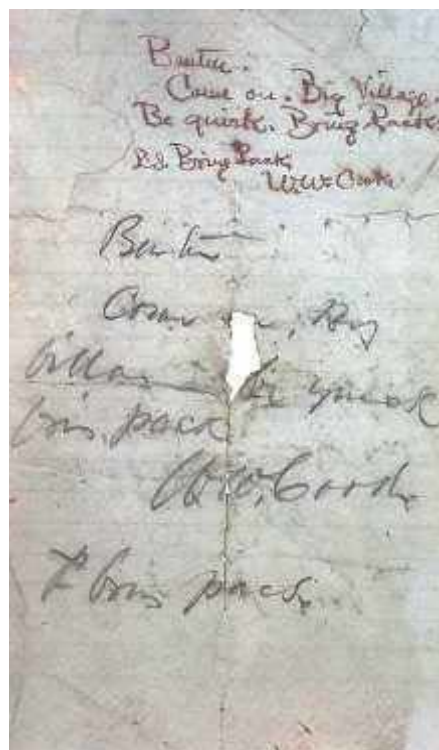 Benteen.
Come on. Big Village.
Be quick. Bring Packs.
P.S. Bring Packs
W.W. Cooke
Benteen
Come on, Big
Village be quick
bring packs
W.W. Cooke
P bring pacs.